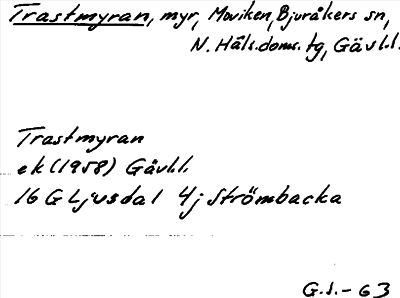 Trastmyran, myr, Moviken, Bjuråkers sn,
N. Häls.doms. tg, Gävl.l.
Trastmyran
ek (1958) Gävl.l.
16 G Ljusdal 4j Strömbacka
G.S.-63